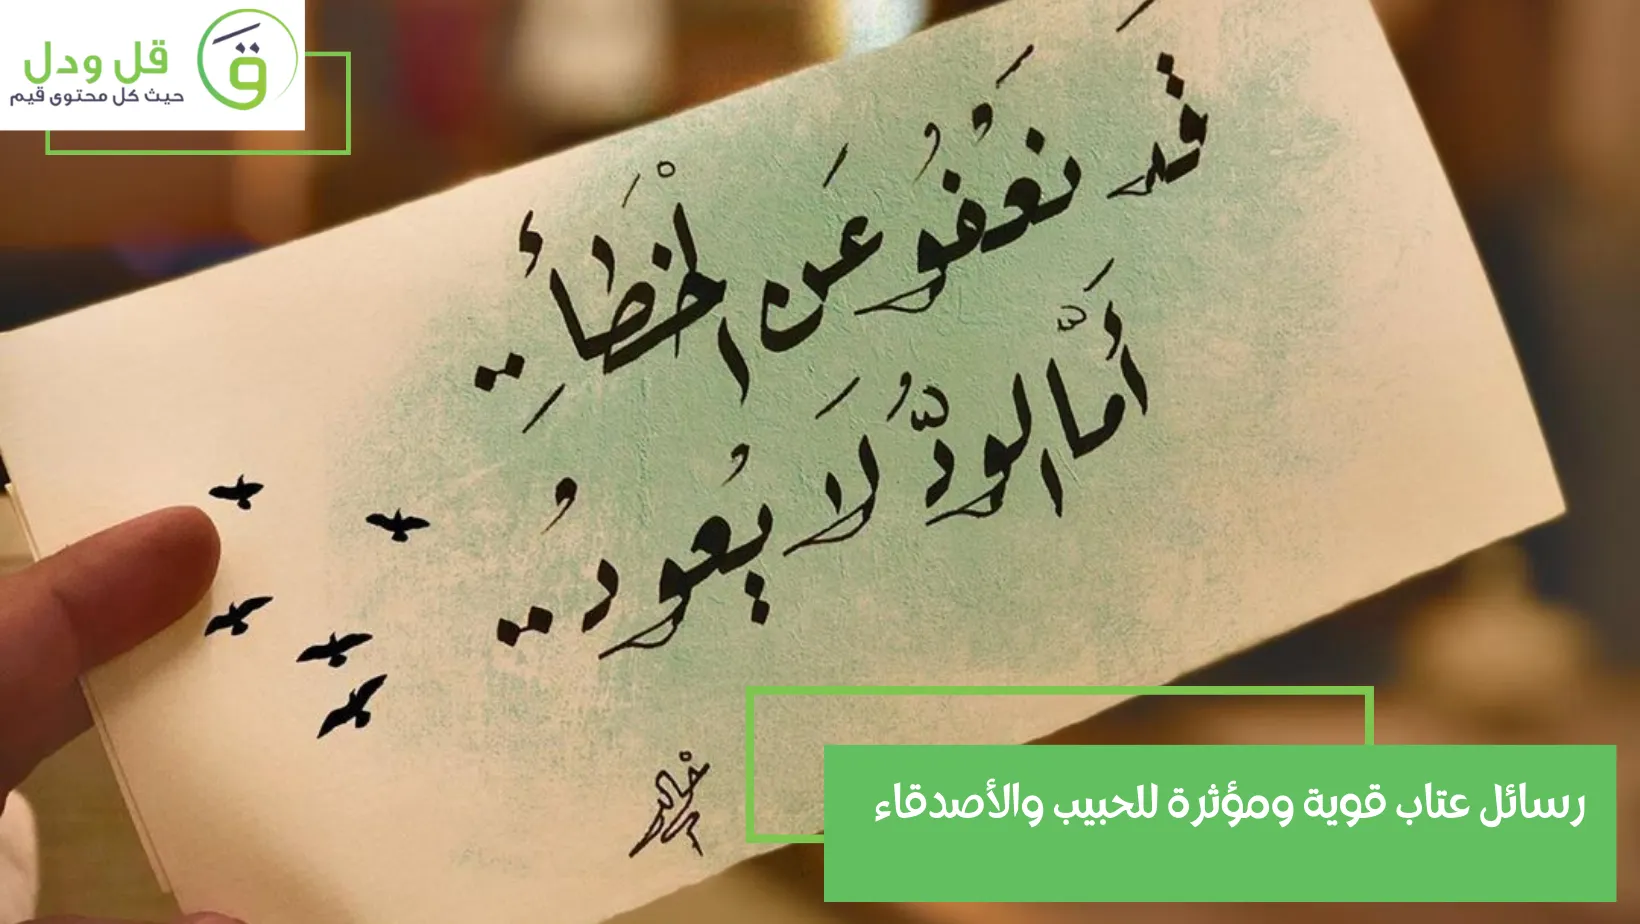 قل ودل
حيث كل محتوى قيم
قَد نَعْفُو عَن الْخَطَأِ..
أَمَّا الودُّ لَا يُعودُ..
خالد
رسائل عتاب قوية ومؤثرة للحبيب والأصدقاء